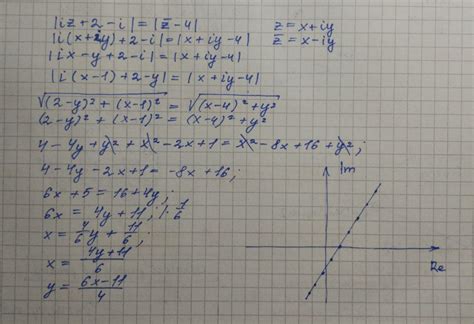 |iz+2-i|=|z̅-4|
z=x+iy
|i(x+iy)+2-i|=|x+iy-4|
z̅=x-iy
|ix-y+2-i|=|x+iy-4|
|i(x-1)+2-y|=|x+iy-4|
√((2-y)²+(x-1)²)=√((x-4)²+y²)
(2-y)²+(x-1)²=(x-4)²+y²
4-4y+y²+x²-2x+1=x²-8x+16+y²;
4-4y-2x+1=-8x+16;
6x+5=16+4y;
6x=4y+11; |·1/6
x=4/6y+11/6;
x=(4y+11)/6
y=(6x-11)/4
Im
Re